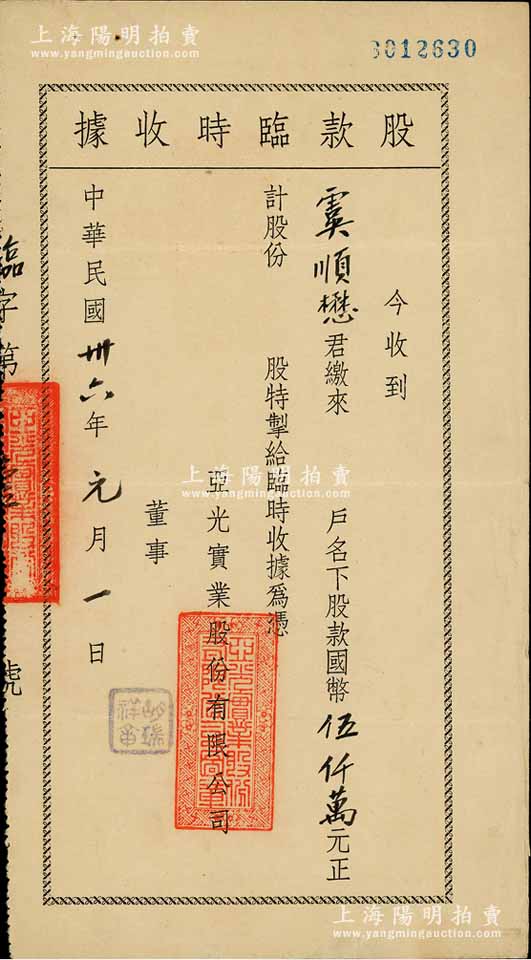 上海陽明拍賣
www.yangmingauction.com
3012630
股款臨時收據
今收到
虞順懋君繳來 戶名下股款國幣伍仟萬元正
計股份 股特掣給臨時收據爲憑
亞光實業股份有限公司
董事
中華民國卅六年元月一日
臨字第 號
上海陽明拍賣
www.yangmingauction.com
上海陽明拍賣
www.yangmingauction.com